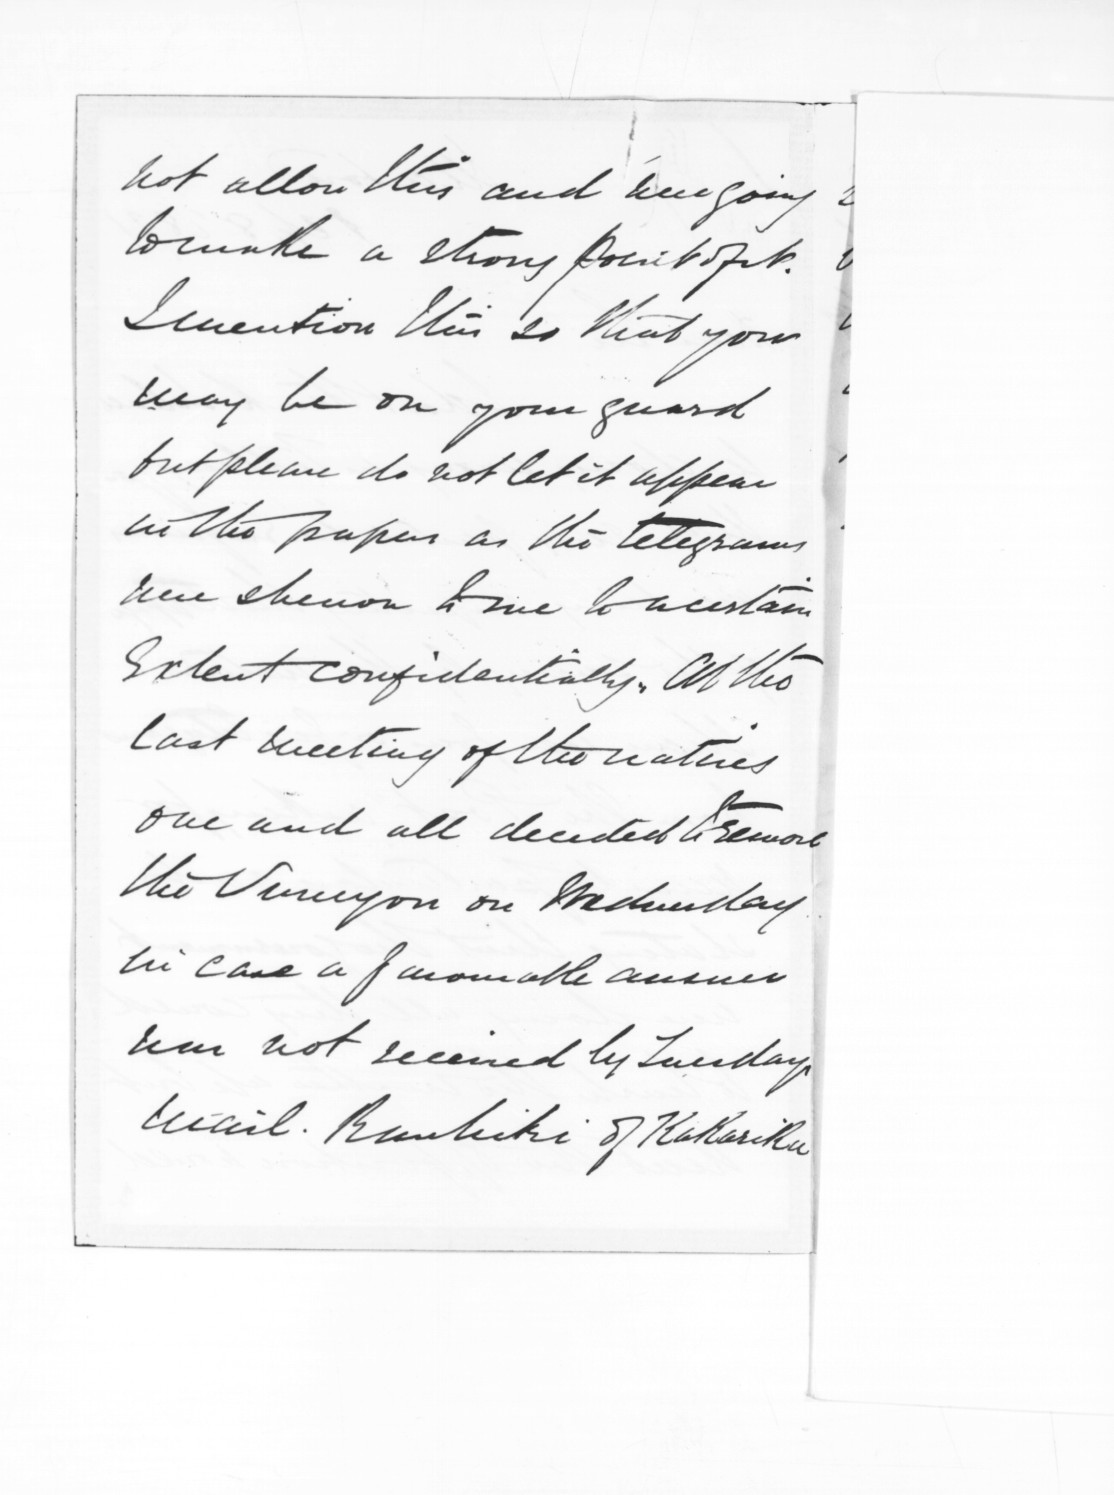 not allow this and were going
to make a strong point of it.
I mention this so that you
may be on your guard
but please do not let it appear
in the papers as the telegrams
were shewn to me to a certain
Extent confidentially. At the
last meeting of the natives
one and all decided to remove
the Surveyors on Wednesday
in case a favourable answer
was not received by Tuesdays
mail. of Kakariki